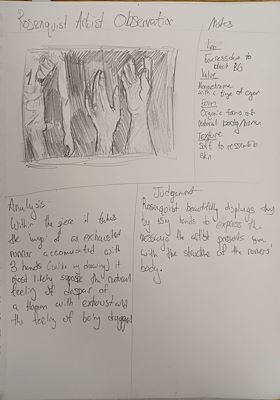 Rosenquist Artist Observation
Notes
Line
Value
Monochrome
with a tinge of cyan
Form
Organic forms of
natural body/human
Texture
Soft to resemble
skin
Analysis
Within the piece it takes
the image of an exhausted
runner accompanied with
3 hands (unlike my drawing) it
most likely suppose the natural
feeling of despair of
a human with exhaust and
the feeling of being dragged
Judgement
Rosenquist beautifully displays
by using hands to express the
message the artist presents
with the structure of the runners'
body.